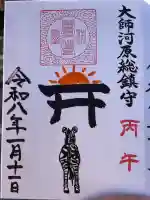 大師河原総鎮守
丙午
令和八年一月十一日